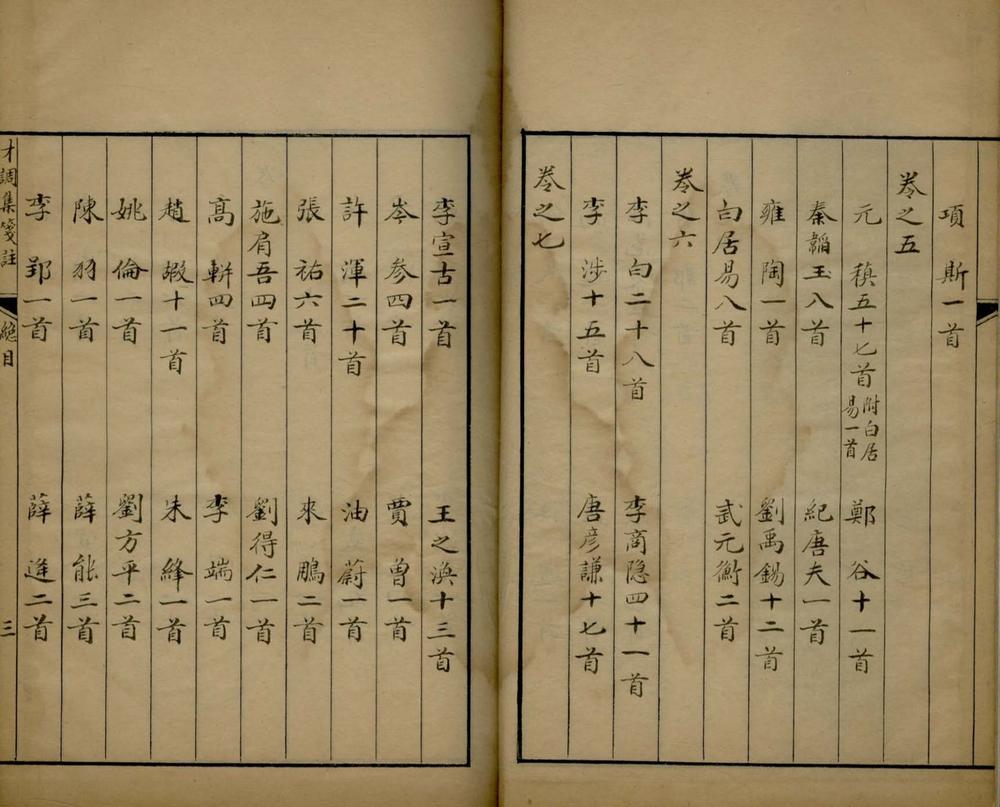 項斯一首
卷之五
元稹五十七首附白居易一首 鄭谷十一首
秦韜玉八首 紀唐夫一首
雍陶一首 劉禹錫十二首
白居易八首 武元衡二首
卷之六
李白二十八首 李商隐四十一首
李涉十五首 唐彦謙十七首
卷之七
李宣古一首 王之渙十三首
岑参四首 賈曾一首
許渾二十首 油蔚一首
張祐六首 來鵬二首
施肩吾四首 劉得仁一首
高駢四首 李端一首
趙嘏十一首 朱絳一首
姚倫一首 劉方平二首
陳羽一首 薛能三首
李郢一首 薛逢二首
才調集箋註 總目 三